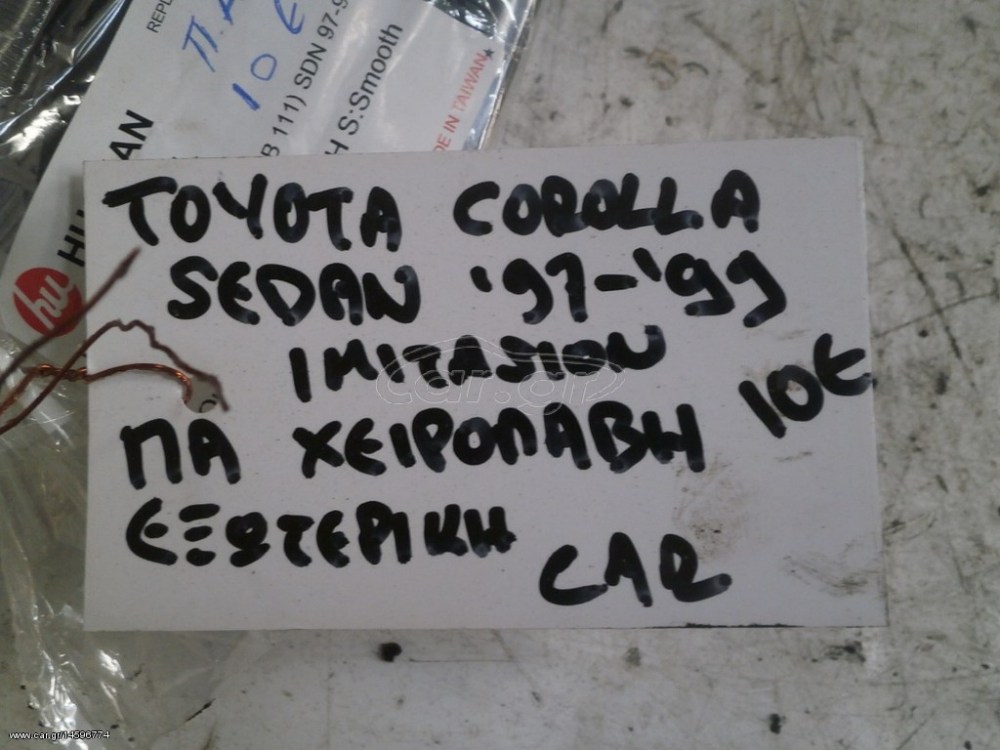 REPL
Π.Α
10 €
B 111) SDN 97-9
H S:Smooth
DE IN TAIWAN
AN
HU
hu
TOYOTA COROLLA
SEDAN '97-'99
IMITASION
10€
ΠΑ ΧΕΙΡΟΛΑΒΗ
ΕΞΩΤΕΡΙΚΗ
CAR
car.gr
www.car.gr/14596774